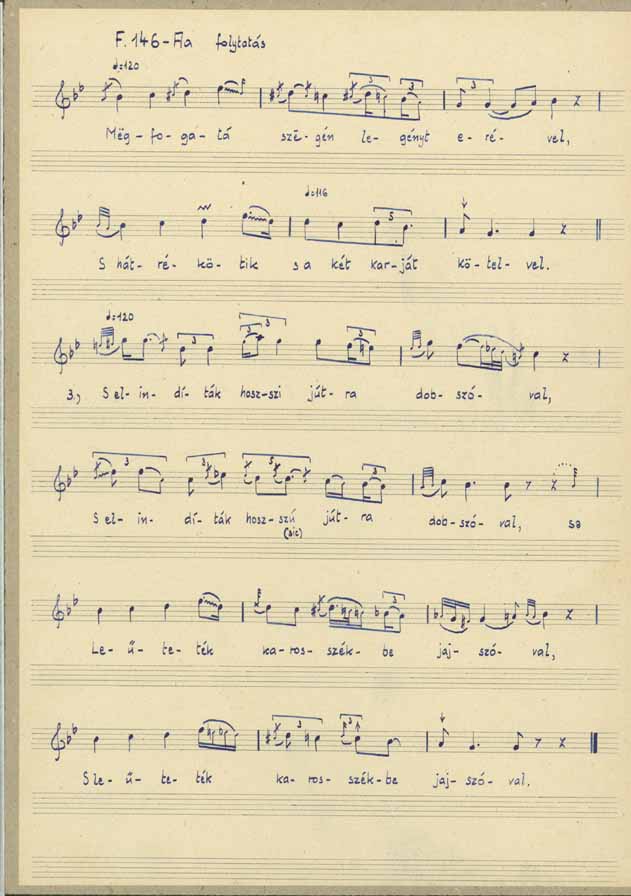 F.146-Aa folytatás
♩=120
Mëg-fo-ga-tá szë-gén le-gényt e-ré-vel,
♩=116
S hát-ré-kö-tik s a két kar-ját kö-tel-vel.
♩=120
3., S el-in-dí-ták hosz-szi jút-ra dob-szó-val,
S el-in-dí-ták hosz-szú jút-ra dob-szó-val, sə
(sic)
Le-ű-te-ték ka-ros-szék-be jaj-szó-val,
S le-ű-te-ték ka-ros-szék-be jaj-szó-val.